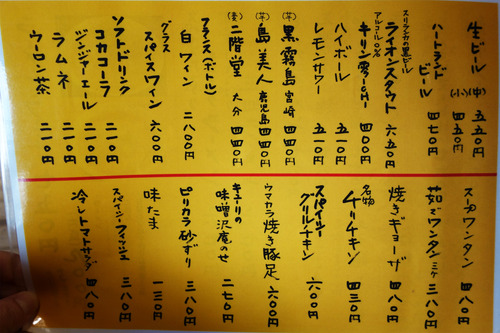 生ビール (中) 五五〇円
(小) 四五〇円
ハートランドビール 四七〇円
スリランカの黒ビール
ライオンスタウト 六五〇円
アルコール0%
キリン零ICHI 四〇〇円
ハイボール 五一〇円
レモンサワー 五一〇円
(芋) 黒霧島 宮崎 四四〇円
(芋) 島美人 鹿児島 四四〇円
(麦) 二階堂 大分 四四〇円
フランス(ボトル)
白ワイン 二八〇〇円
グラス
スパイスワイン 六〇〇円
ソフトドリンク
コカコーラ 二一〇円
ジンジャーエール 二一〇円
ラムネ 二一〇円
ウーロン茶 二一〇円
スープワンタン 四八〇円
茹でワンタン 三八〇円
焼きギョーザ 四八〇円
名物
チリチキン 四三〇円
スパイシーグリルチキン 六〇〇円
ウマカラ焼き豚足 六〇〇円
キューリの味噌沢庵のせ 二七〇円
ピリカラ砂ずり 三八〇円
味たま 一三〇円
スパイシーフィッシュ 三八〇円
冷しトマトサラダ 四八〇円